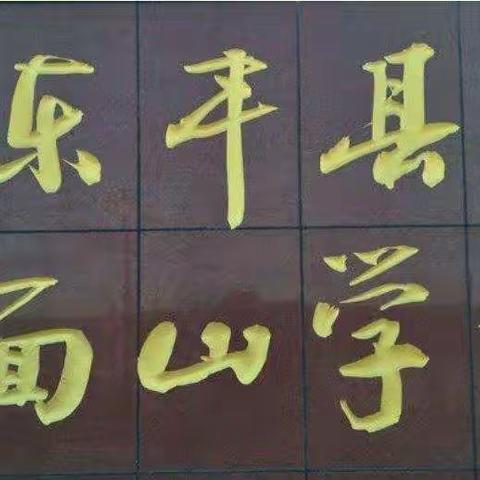 东丰县
面山学